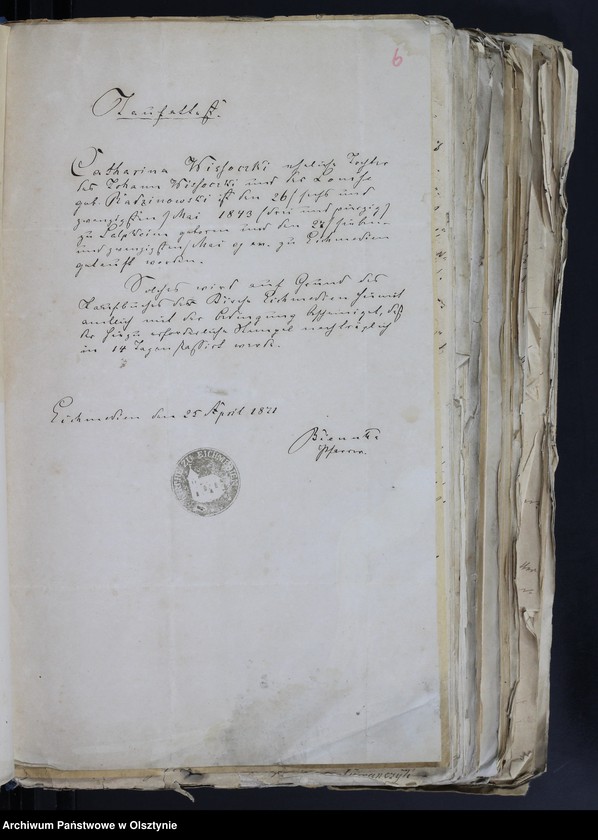 6
Taufattest.
Catharina Wissoczki eheliche Tochter
des Johann Wissoczki und der Louise
geb. Radzinowski ist den 26/ sechs und
zwanzigsten/ Mai 1843 (drei und vierzig)
zu Salpkeim geboren und den 27/ sieben
und zwanzigsten/ Mai ej. an. zu Eichmedien
getauft worden.
Solches wird auf Grund des
Taufbuches der Kirche Eichmedien hiermit
amtlich mit der Bedingung bescheinigt, daß
der hiezu erforderliche Stempel nachträglich
in 14 Tagen kassirt werde.
Eichmedien den 25 April 1871
Pfarrer.
Archiwum Państwowe w Olsztynie